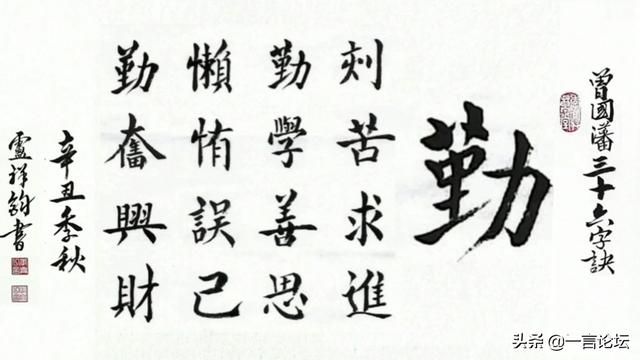 曾國藩三十六字訣
勤
刻苦求進
勤學善思
懶惰誤己
勤奮興財
辛丑季秋
盧祥鈞書
头条 @一言论坛